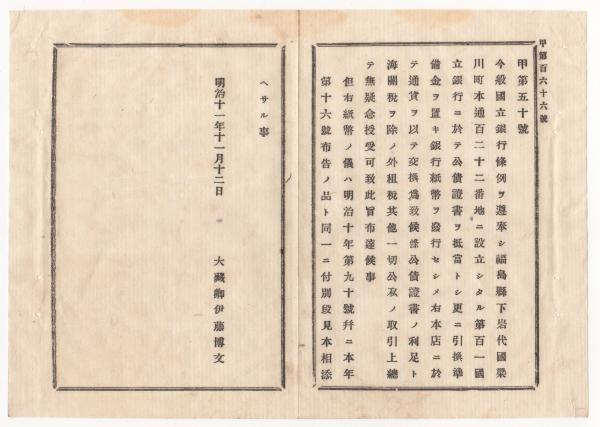 甲第百六十六號
甲第五十號
今般國立銀行條例ヲ遵奉シ福島縣下岩代國梁
川町本通百二十二番地ニ設立シタル第百一國
立銀行ニ於テ公債證書ヲ抵當トシ更ニ引換準
備金ヲ置キ銀行紙幣ヲ發行セシメ右本店ニ於
テ通貨ヲ以テ交換爲致候條公債證書ノ利足ト
海關稅ヲ除ノ外租稅其他一切公私ノ取引上總
テ無疑念授受可致此旨布達候事
但右紙幣ノ儀ハ明治十年第九十號幷ニ本年
第十六號布告ノ品ト同一ニ付別段見本相添
ヘサル事
明治十一年十一月十二日
大藏卿伊藤博文